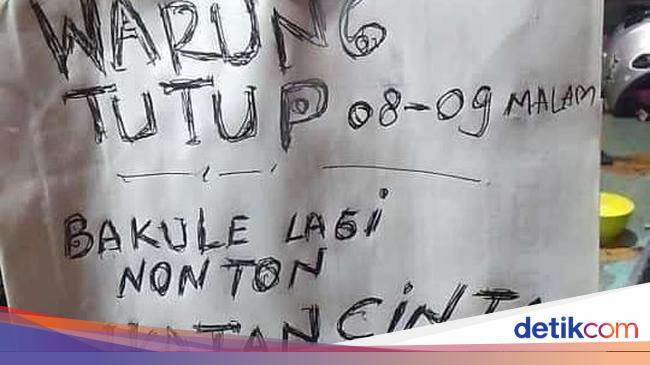 WARUNG
TUTUP 08-09 MALAM
BAKULE LAGI
NONTON
IKATAN CINTA
detikcom